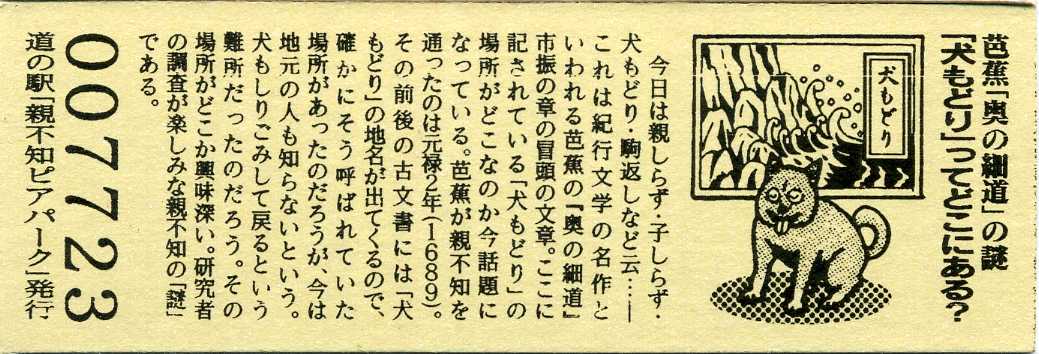 芭蕉「奥の細道」の謎
「犬もどり」ってどこにある?
犬もどり
今日は親しらず・子しらず・
犬もどり・駒返しなど云…――
これは紀行文学の名作と
いわれる芭蕉の『奥の細道』
市振の章の冒頭の文章。ここに
記されている「犬もどり」の
場所がどこなのか今話題に
なっている。芭蕉が親不知を
通ったのは元禄2年(1689)。
その前後の古文書には「犬
もどり」の地名が出てくるので、
確かにそう呼ばれていた
場所があったのだろうが、今は
地元の人も知らないという。
犬もしりごみして戻るという
難所だったのだろう。その
場所がどこか興味深い。研究者
の調査が楽しみな親不知の「謎」
である。
007723
道の駅「親不知ピアパーク」発行